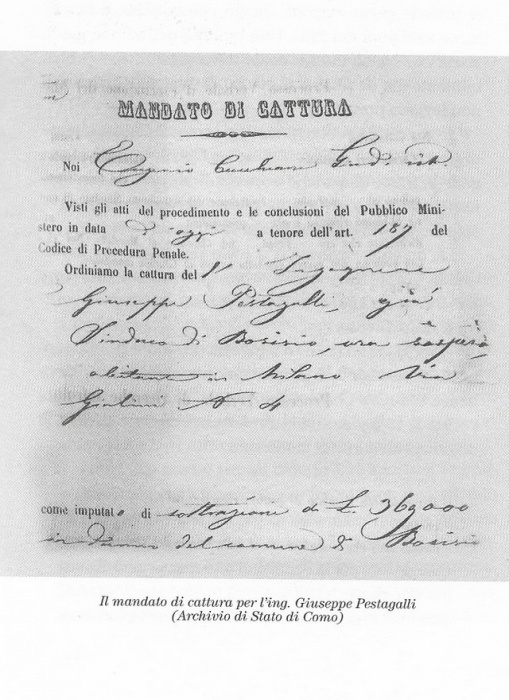 MANDATO DI CATTURA
Noi Eugenio Giud. istr.
Visti gli atti del procedimento e le conclusioni del Pubblico Mini-
stero in data d'oggi a tenore dell'art. 187 del
Codice di Procedura Penale.
Ordiniamo la cattura del l' Ingegnere
Giuseppe Pestagalli, già
Sindaco di Bosisio, ora
abitante in Milano Via
Giulini N 4
come imputato di sottrazione di L. 369000
in danno del comune di Bosisio
Il mandato di cattura per l'ing. Giuseppe Pestagalli
(Archivio di Stato di Como)